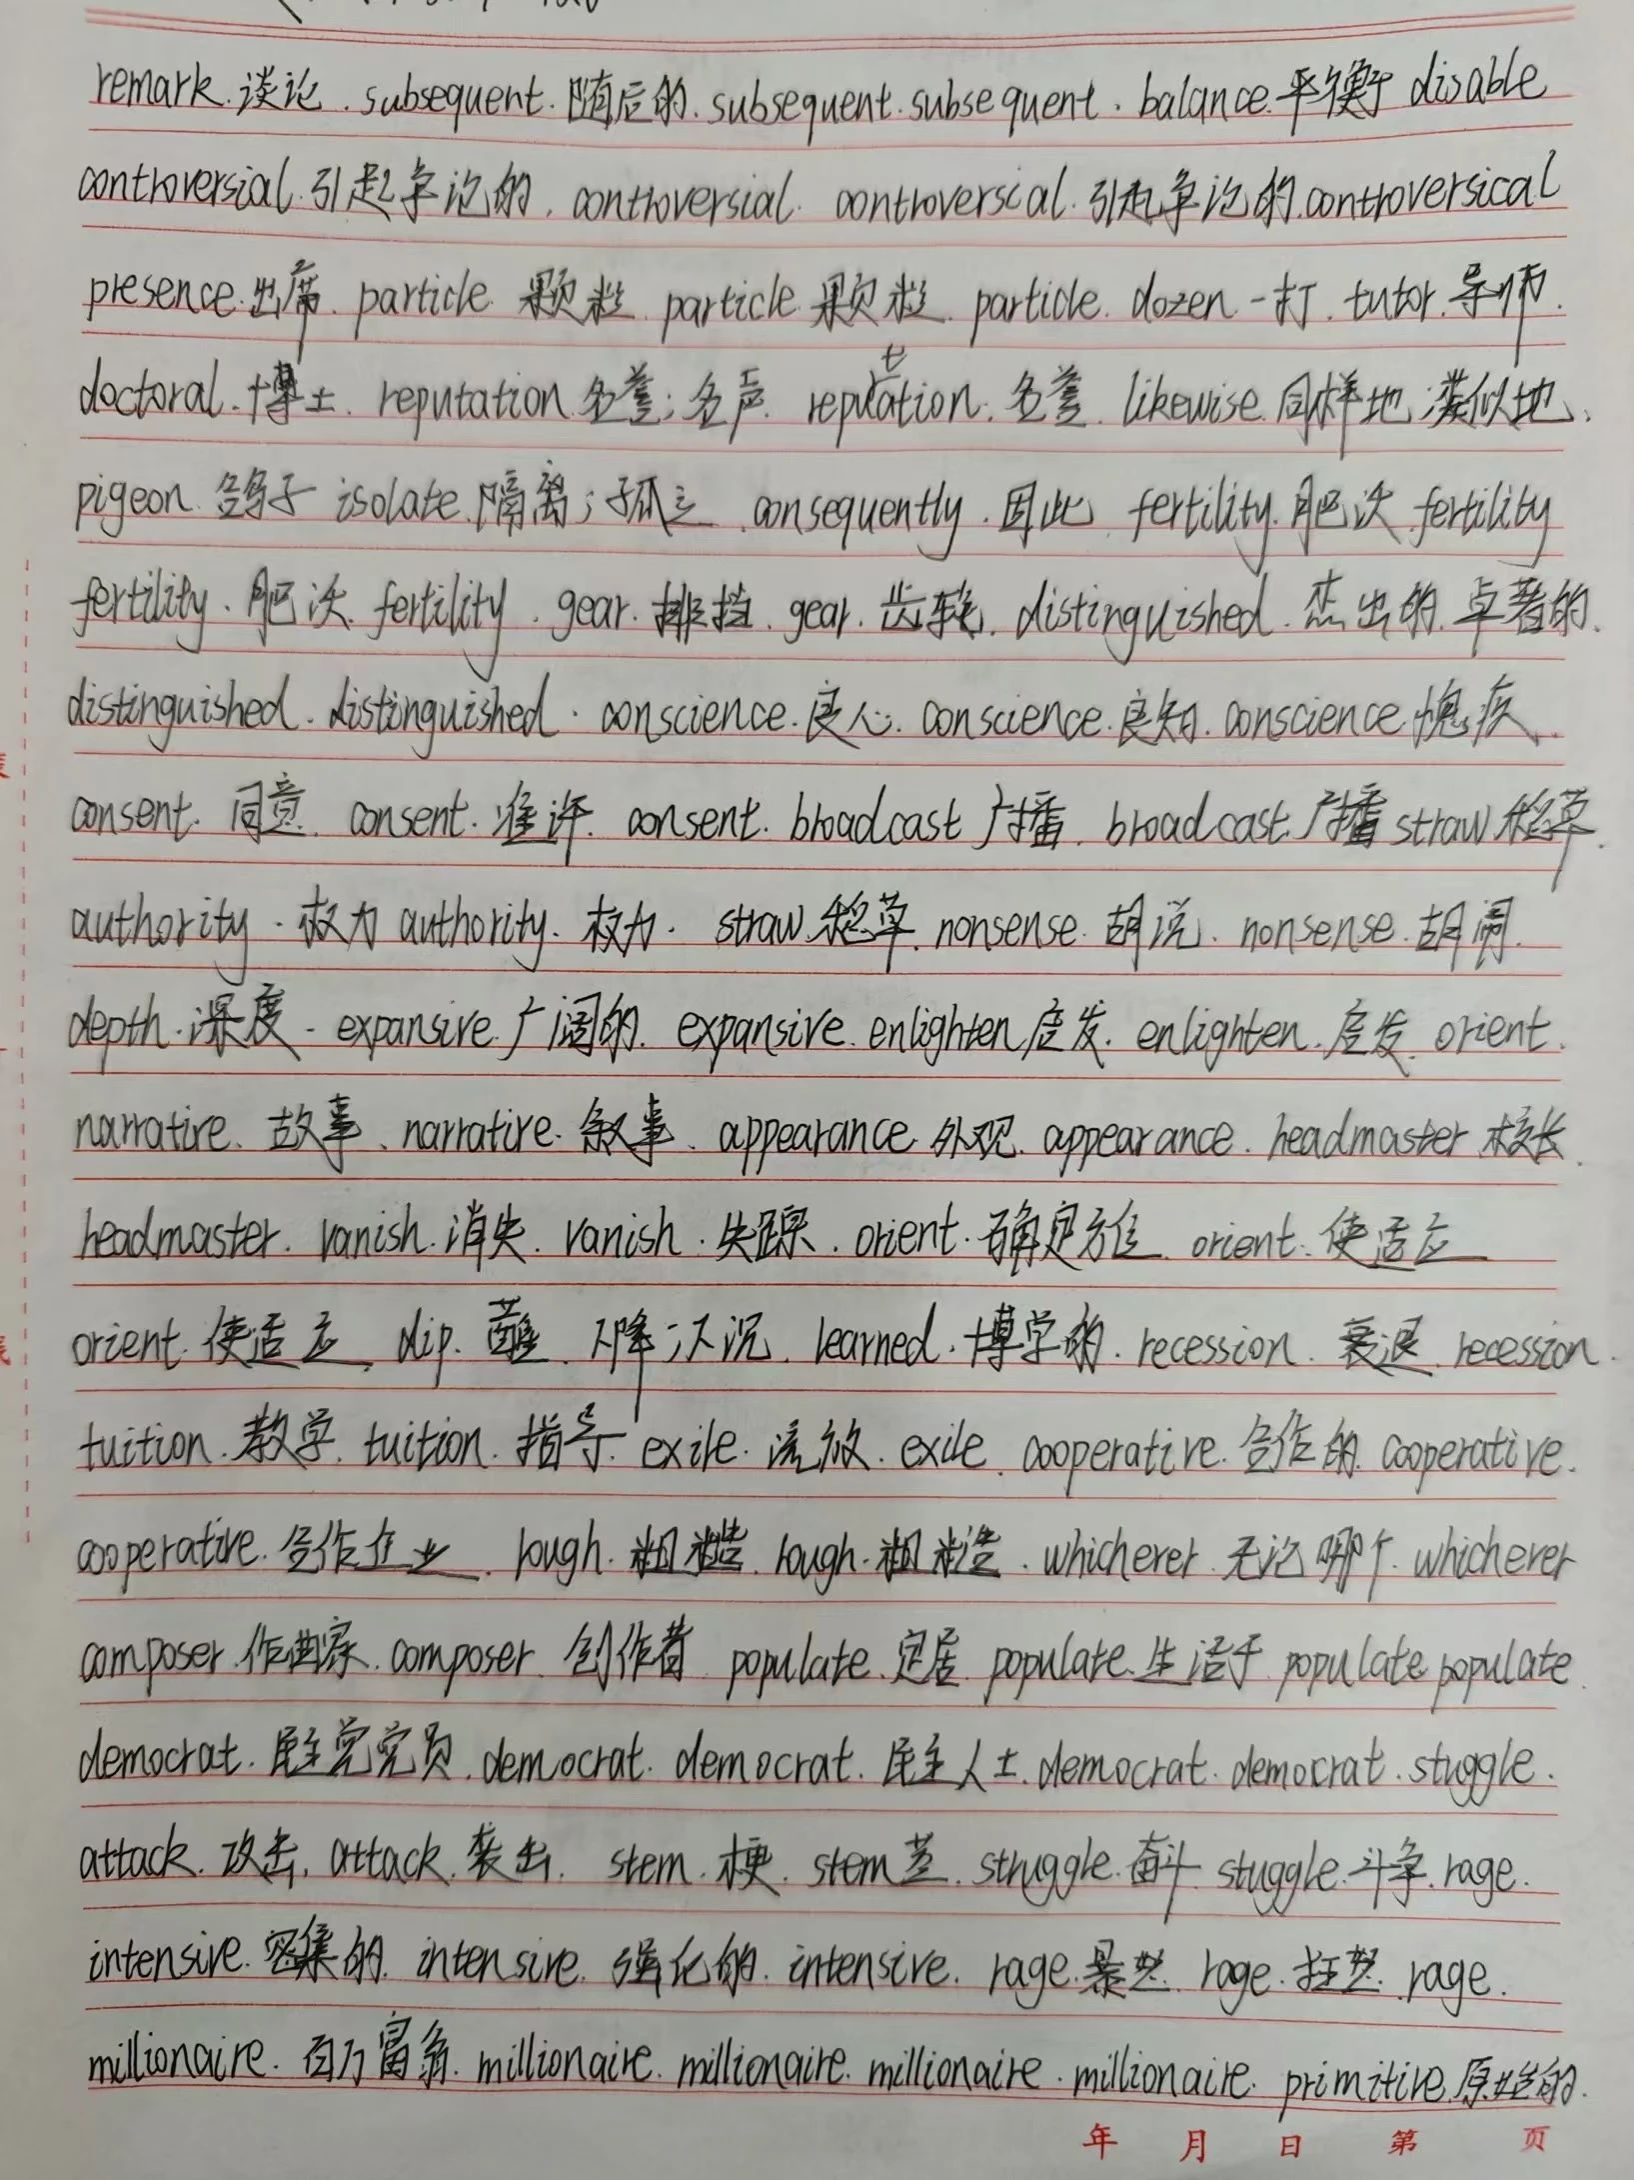 remark. 谈论. subsequent. 随后的. subsequent. subsequent. balance. 平衡 disable
controversial. 引起争论的. controversial. controversial. 引起争论的. controversical
presence. 出席. particle 颗粒. particle. 颗粒. particle. dozen 一打. tutor. 导师.
doctoral. 博士. reputation. 名誉; 名声. reputation. 名誉. likewise. 同样地; 类似地.
pigeon. 鸽子 isolate. 隔离; 孤立. consequently. 因此 fertility. 肥沃. fertility
fertility. 肥沃. fertility. gear. 排挡. gear. 齿轮. distinguished. 杰出的. 卓著的.
distinguished. distinguished. conscience. 良心. conscience. 良知. conscience 愧疚.
consent. 同意. consent. 准许. consent. broadcast 广播. broadcast. 广播 straw 稻草.
authority. 权力 authority. 权力. straw. 稻草. nonsense. 胡说. nonsense. 胡闹.
depth. 深度. expansive. 广阔的. expansive. enlighten 启发. enlighten. 启发. orient.
narrative. 故事. narrative. 叙事. appearance 外观. appearance. headmaster 校长.
headmaster. vanish. 消失. vanish. 失踪. orient. 确定方位. orient. 使适应
orient. 使适应. dip. 蘸. 下降; 下沉. learned. 博学的. recession. 衰退. recession.
tuition. 教学. tuition. 指导. exile. 流放. exile. cooperative. 合作的. cooperative.
cooperative. 合作企业. rough. 粗糙. rough. 粗糙. whichever 无论哪个. whichever
composer. 作曲家. composer. 创作者 populate. 定居 populate. 生活于 populate populate.
democrat. 民主党党员. democrat. democrat. 民主人士. democrat. democrat. stuggle.
attack. 攻击. attack. 袭击. stem. 梗. stem 茎. struggle. 奋斗. stuggle. 斗争. rage.
intensive. 密集的. intensive. 强化的. intensive. rage. 暴怒. rage. 狂怒. rage.
millionaire. 百万富翁. millionaire. millionaire. millionaire. millionaire. primitive. 原始的.
年 月 日 第 页